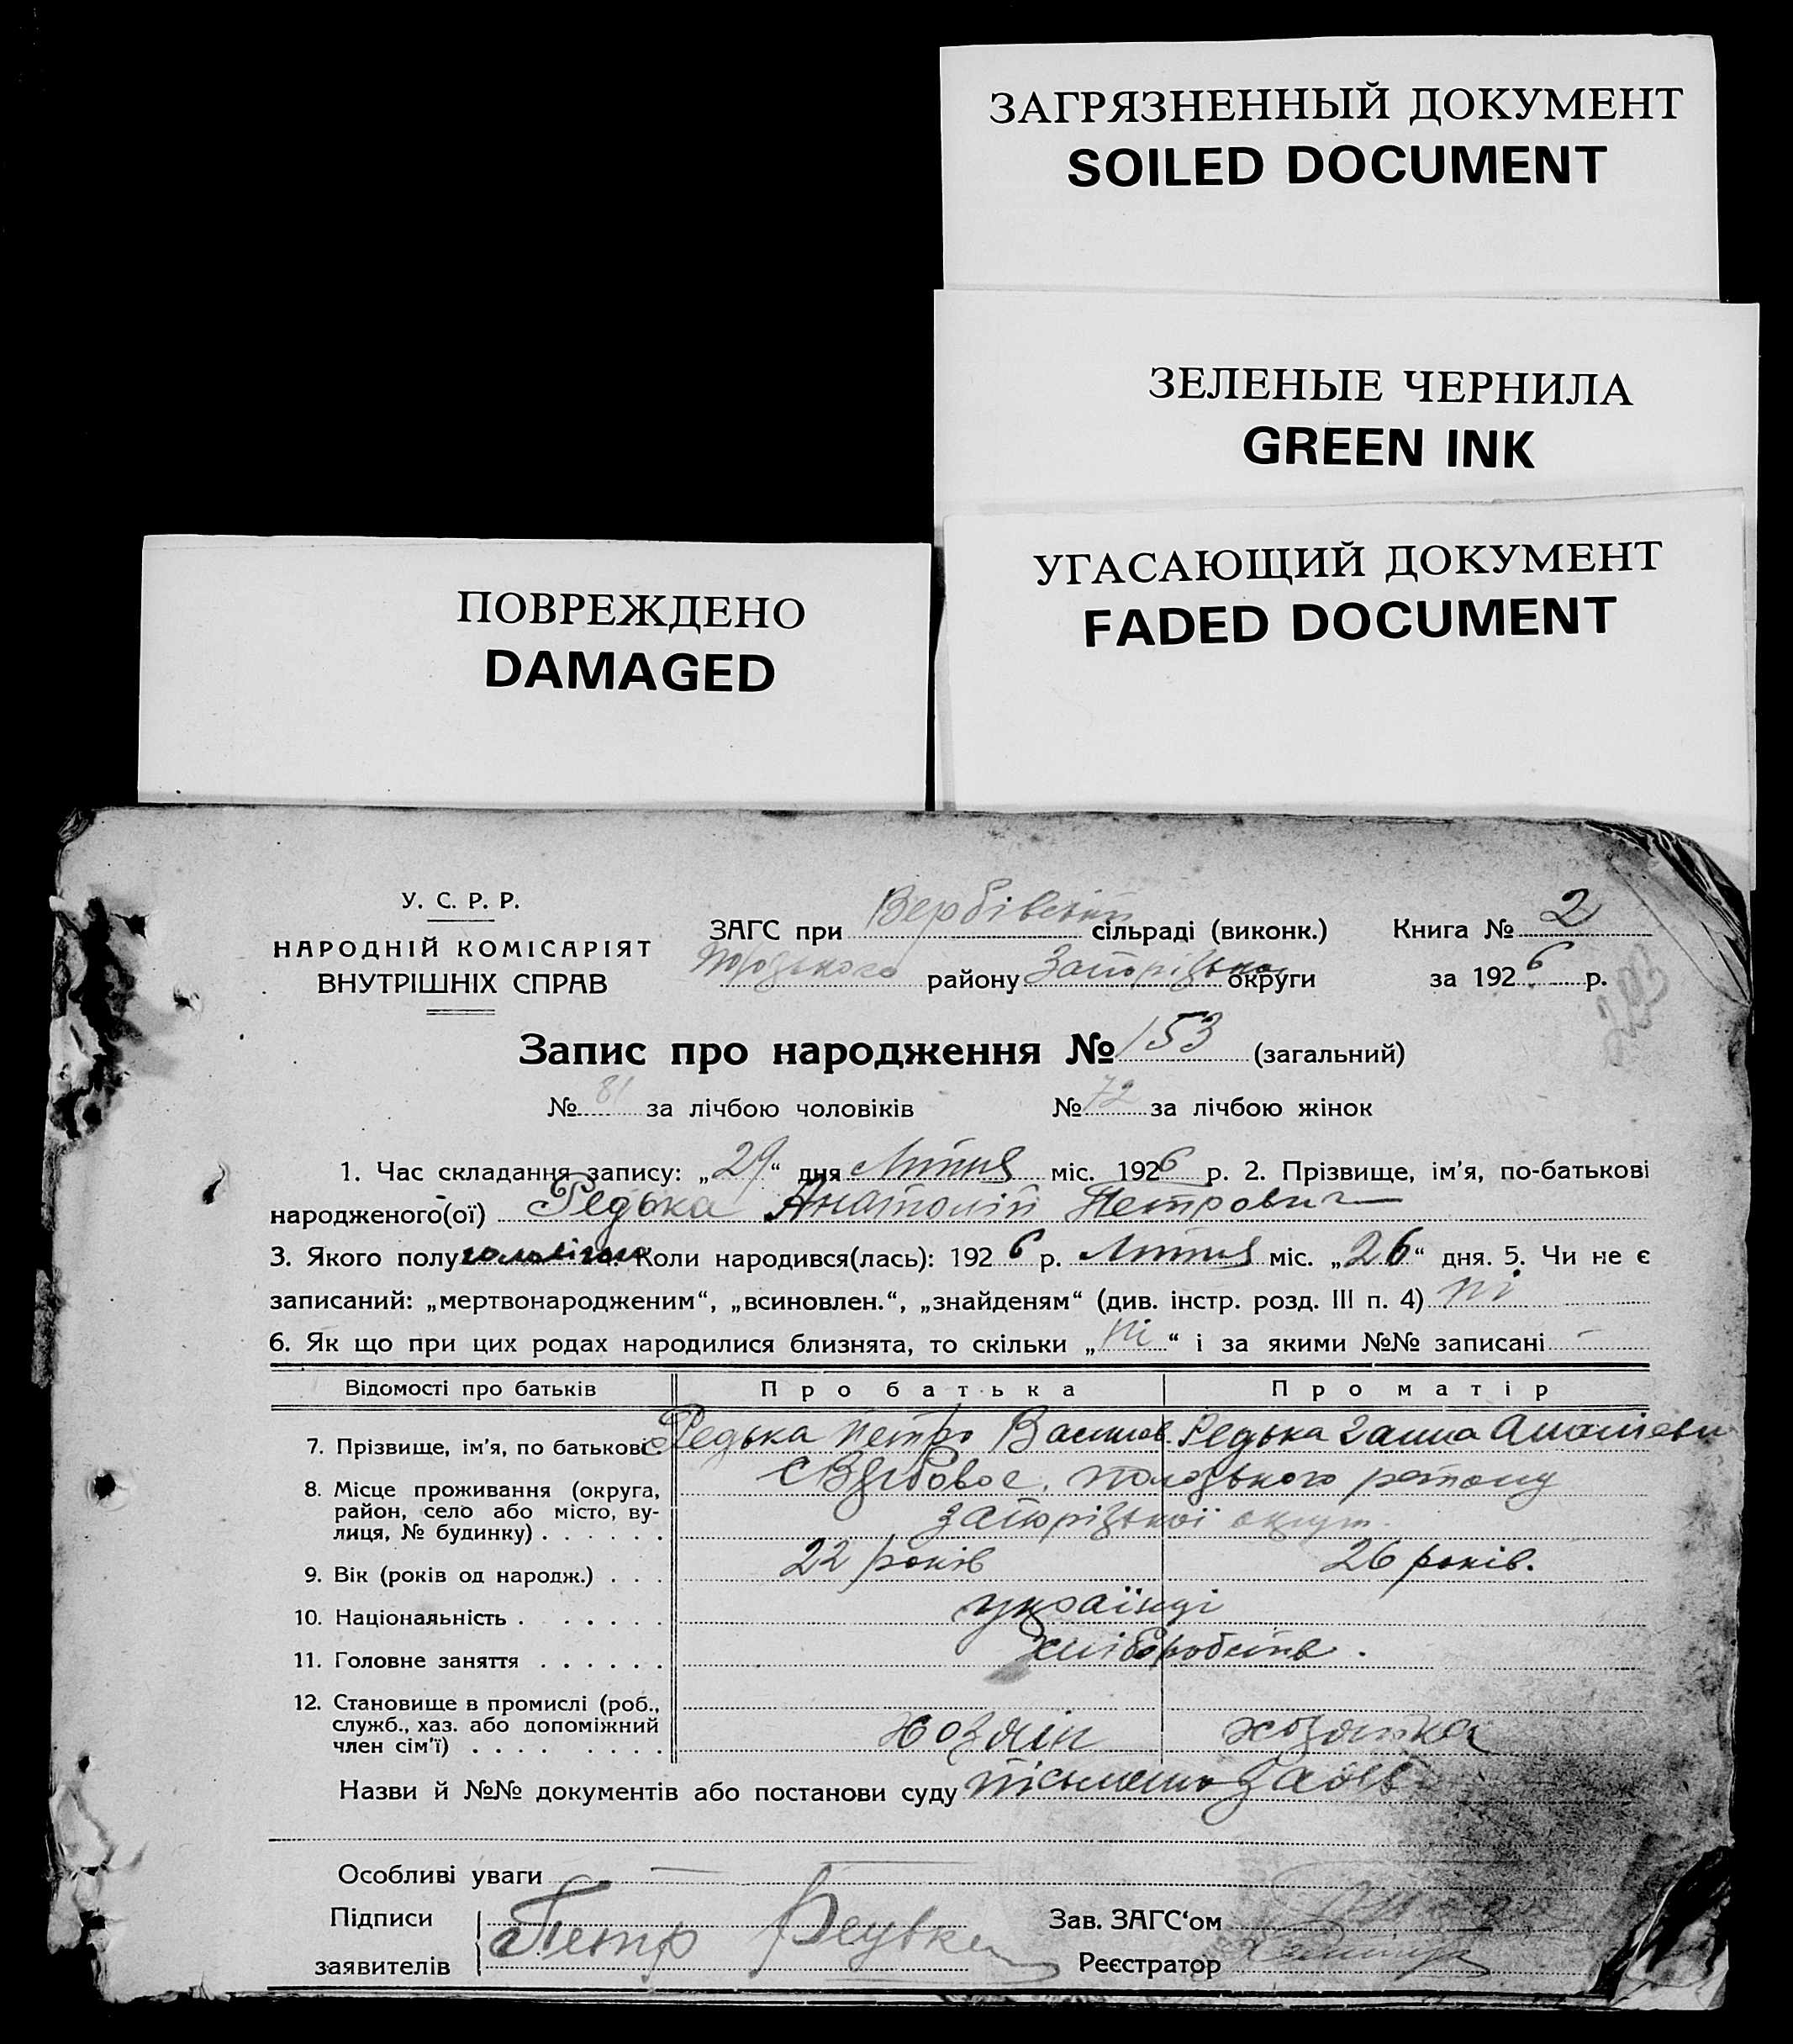 ЗАГРЯЗНЕННЫЙ ДОКУМЕНТ
SOILED DOCUMENT
ЗЕЛЕНЫЕ ЧЕРНИЛА
GREEN INK
УГАСАЮЩИЙ ДОКУМЕНТ
FADED DOCUMENT
ПОВРЕЖДЕНО
DAMAGED
У. С. Р. Р.
НАРОДНІЙ КОМІСАРІЯТ
ВНУТРІШНІХ СПРАВ
ЗАГС при Вербівській сільраді (виконк.)
району Запорізької округи
Книга № 2
за 1926 р.
Запис про народження № 153 (загальний)
№ 81 за лічбою чоловіків № 72 за лічбою жінок
1. Час складання запису: „29“ дня Липня міс. 1926 р. 2. Прізвище, ім'я, по-батькові
народженого(ої) Редька Анатолій Петрович
3. Якого полу Коли народився(лась): 1926 р. Липня міс. „26“ дня. 5. Чи не є
записаний: „мертвонародженим“, „всиновлен.“, „знайденям“ (див. інстр. розд. III п. 4) ні
6. Як що при цих родах народилися близнята, то скільки „ні“ і за якими №№ записані —
Відомості про батьків Про батька Про матір
7. Прізвище, ім'я, по батькові Редька Петро Васильов. Редька Ганна
8. Місце проживання (округа, район, село або місто, вулиця, № будинку) . . . . . . с. району
Запорізької округи
9. Вік (років од народж.) . . . 22 років 26 років.
10. Національність . . . . . . українці
11. Головне заняття . . . . . . хліборобство.
12. Становище в промислі (роб., служб., хаз. або допоміжний член сім'ї) . . . . . . . . хозяїн хозяйка
Назви й №№ документів або постанови суду заява
Особливі уваги —
Підписи
заявителів Петр Редька
Зав. ЗАГС'ом
Реєстратор